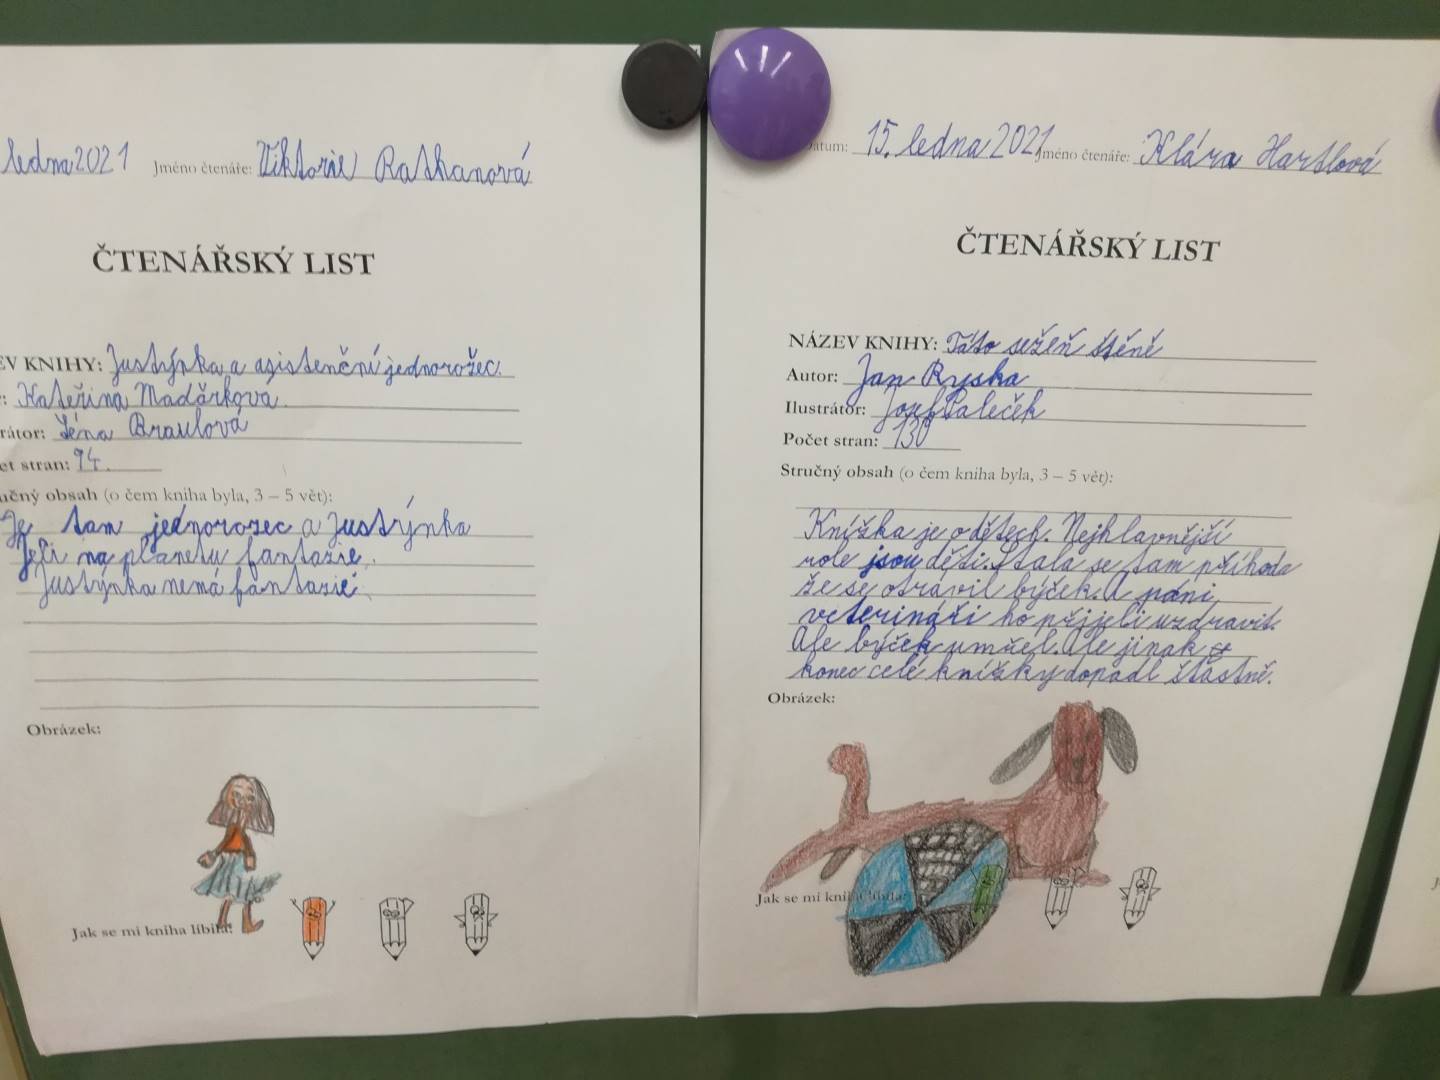 ledna 2021 Jméno čtenáře: Viktorie Rathanová
ČTENÁŘSKÝ LIST
EV KNIHY: Justýnka a asistenční jednorožec.
r: Kateřina Maďárkova
rátor: Léna Braulová
et stran: 94.
učný obsah (o čem kniha byla, 3 – 5 vět):
Je tam jednorozec a Justýnka
Jeli na planetu fantazie.
Justýnka nemá fantazii.
Obrázek:
Jak se mi kniha líbila:
Datum: 15. ledna 2021 Jméno čtenáře: Klára Hartlová
ČTENÁŘSKÝ LIST
NÁZEV KNIHY: Táto sežeň štěně
Autor: Jan Ryska
Ilustrátor: Josef Paleček
Počet stran: 130
Stručný obsah (o čem kniha byla, 3 – 5 vět):
Knížka je o dětech. Nejhlavnější
role jsou děti. Stala se tam příhoda
že se otrávil býček. A páni
veterináři ho přijeli uzdravit.
Ale býček umřel. Ale jinak
konec celé knížky dopadl šťastně.
Obrázek:
Jak se mi kniha líbila: